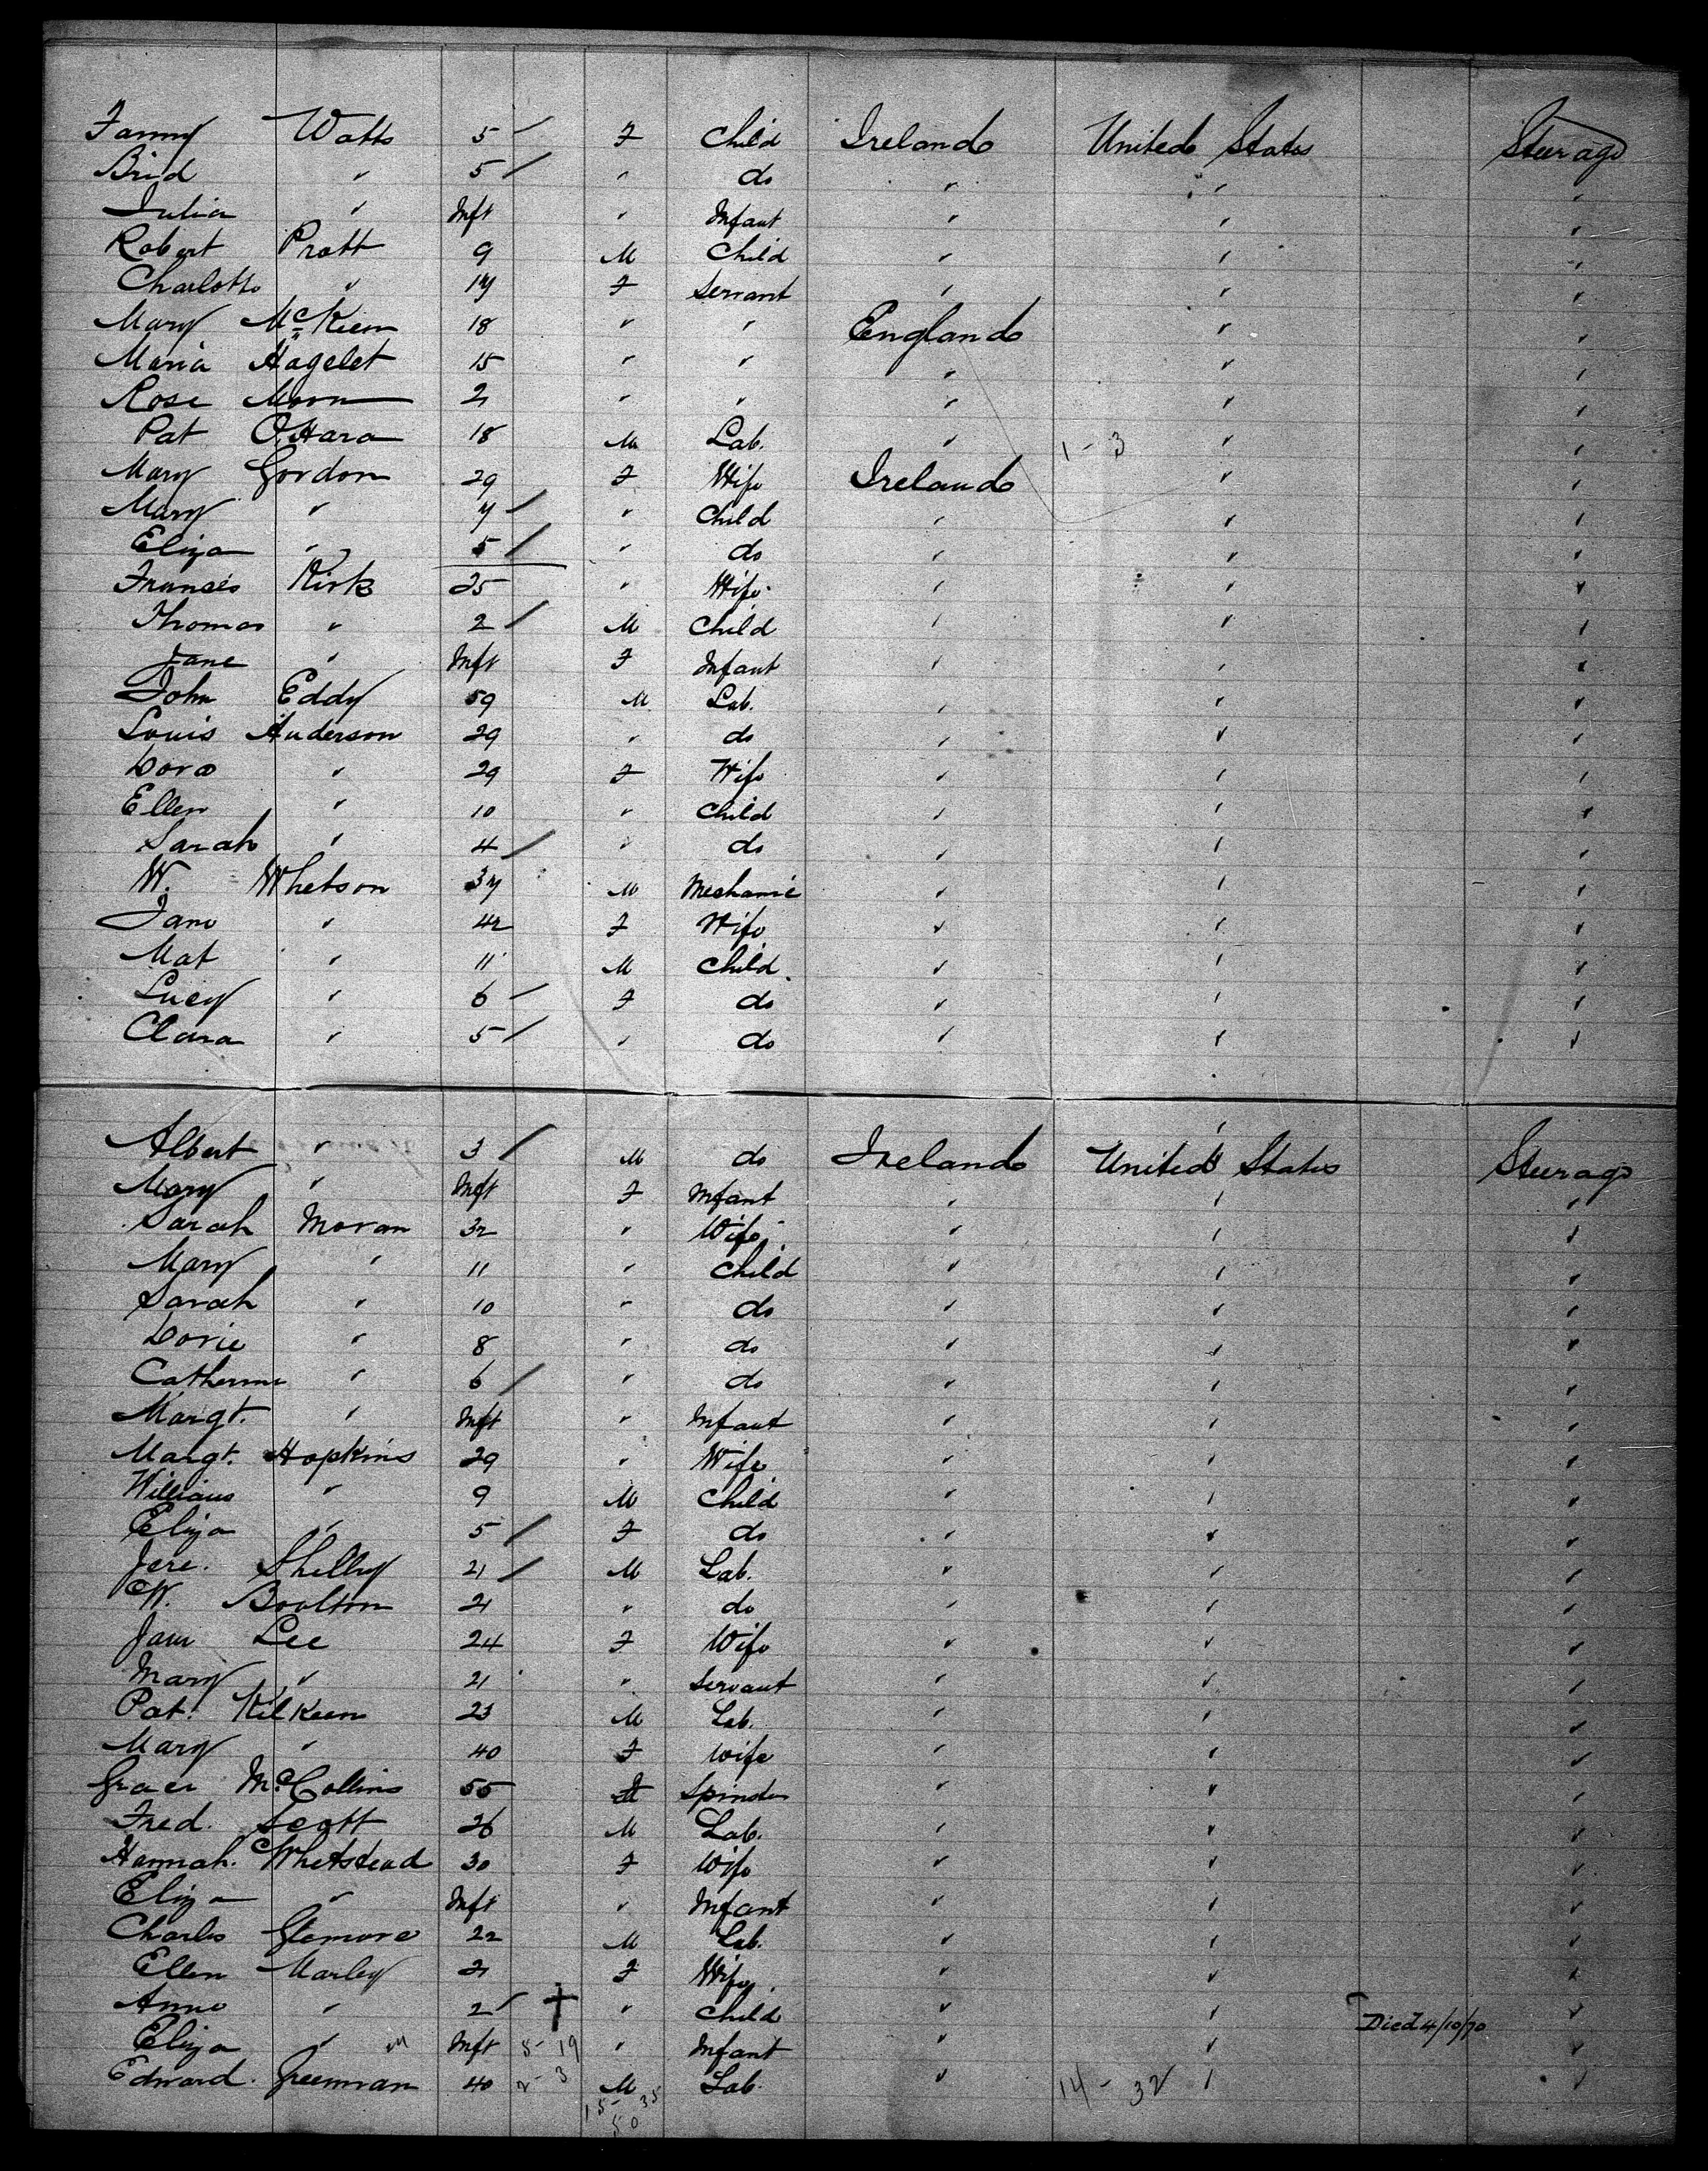 Fanny Watts 5 F Child Ireland United States Steerage
Brid " 5 " do " " "
Julia " Inft " Infant " " "
Robert Pratt 9 M Child " " "
Charlotte " 17 F Servant " " "
Mary McKeen 18 " " England " "
Maria Hagelet 15 " " " " "
Rose 21 " " " " "
Pat O'Hara 18 M Lab. " 1-3 " "
Mary Gordon 29 F Wife Ireland " "
Mary " 7 " Child " " "
Eliza " 5 " do " " "
Francis Kirk 25 " Wife " " "
Thomas " 2 M Child " " "
Jane " Inft F Infant " " "
John Eddy 59 M Lab. " " "
Louis Anderson 29 " do " " "
Dora " 29 F Wife " " "
Ellen " 10 " Child " " "
Sarah " 4 " do " " "
W. Whetson 37 M Mechanic " " "
Jane " 42 F Wife " " "
Mat " 11 M Child " " "
Lucy " 6 F do " " "
Clara " 5 " do " " "
Albert " 3 M do Ireland United States Steerage
Mary " Inft F Infant " " "
Sarah Moran 32 " Wife " " "
Mary " 11 " Child " " "
Sarah " 10 " do " " "
Dorie " 8 " do " " "
Catherine " 6 " do " " "
Margt. " Inft " Infant " " "
Margt. Hopkins 29 " Wife " " "
William " 9 M Child " " "
Eliza " 5 F do " " "
Jere. Shelly 21 M Lab. " " "
W. Boulton 21 " do " " "
Jane Lee 24 F Wife " " "
Mary " 21 " Servant " " "
Pat. Kilkeen 23 M Lab. " " "
Mary " 40 F Wife " " "
Grace McCollins 55 F Spinster " " "
Fred. Scott 26 M Lab. " " "
Hannah. Whetstead 30 F Wife " " "
Eliza " Inft " Infant " " "
Charles Glemore 22 M Lab. " " "
Ellen Marley 21 F Wife " " "
Anne " 2 † " Child " " Died 4/10/70 "
Eliza " M Inft 5-19 " Infant " " "
Edward. Freeman 40 2-3 M Lab. " 14-32 " "
15-35
50